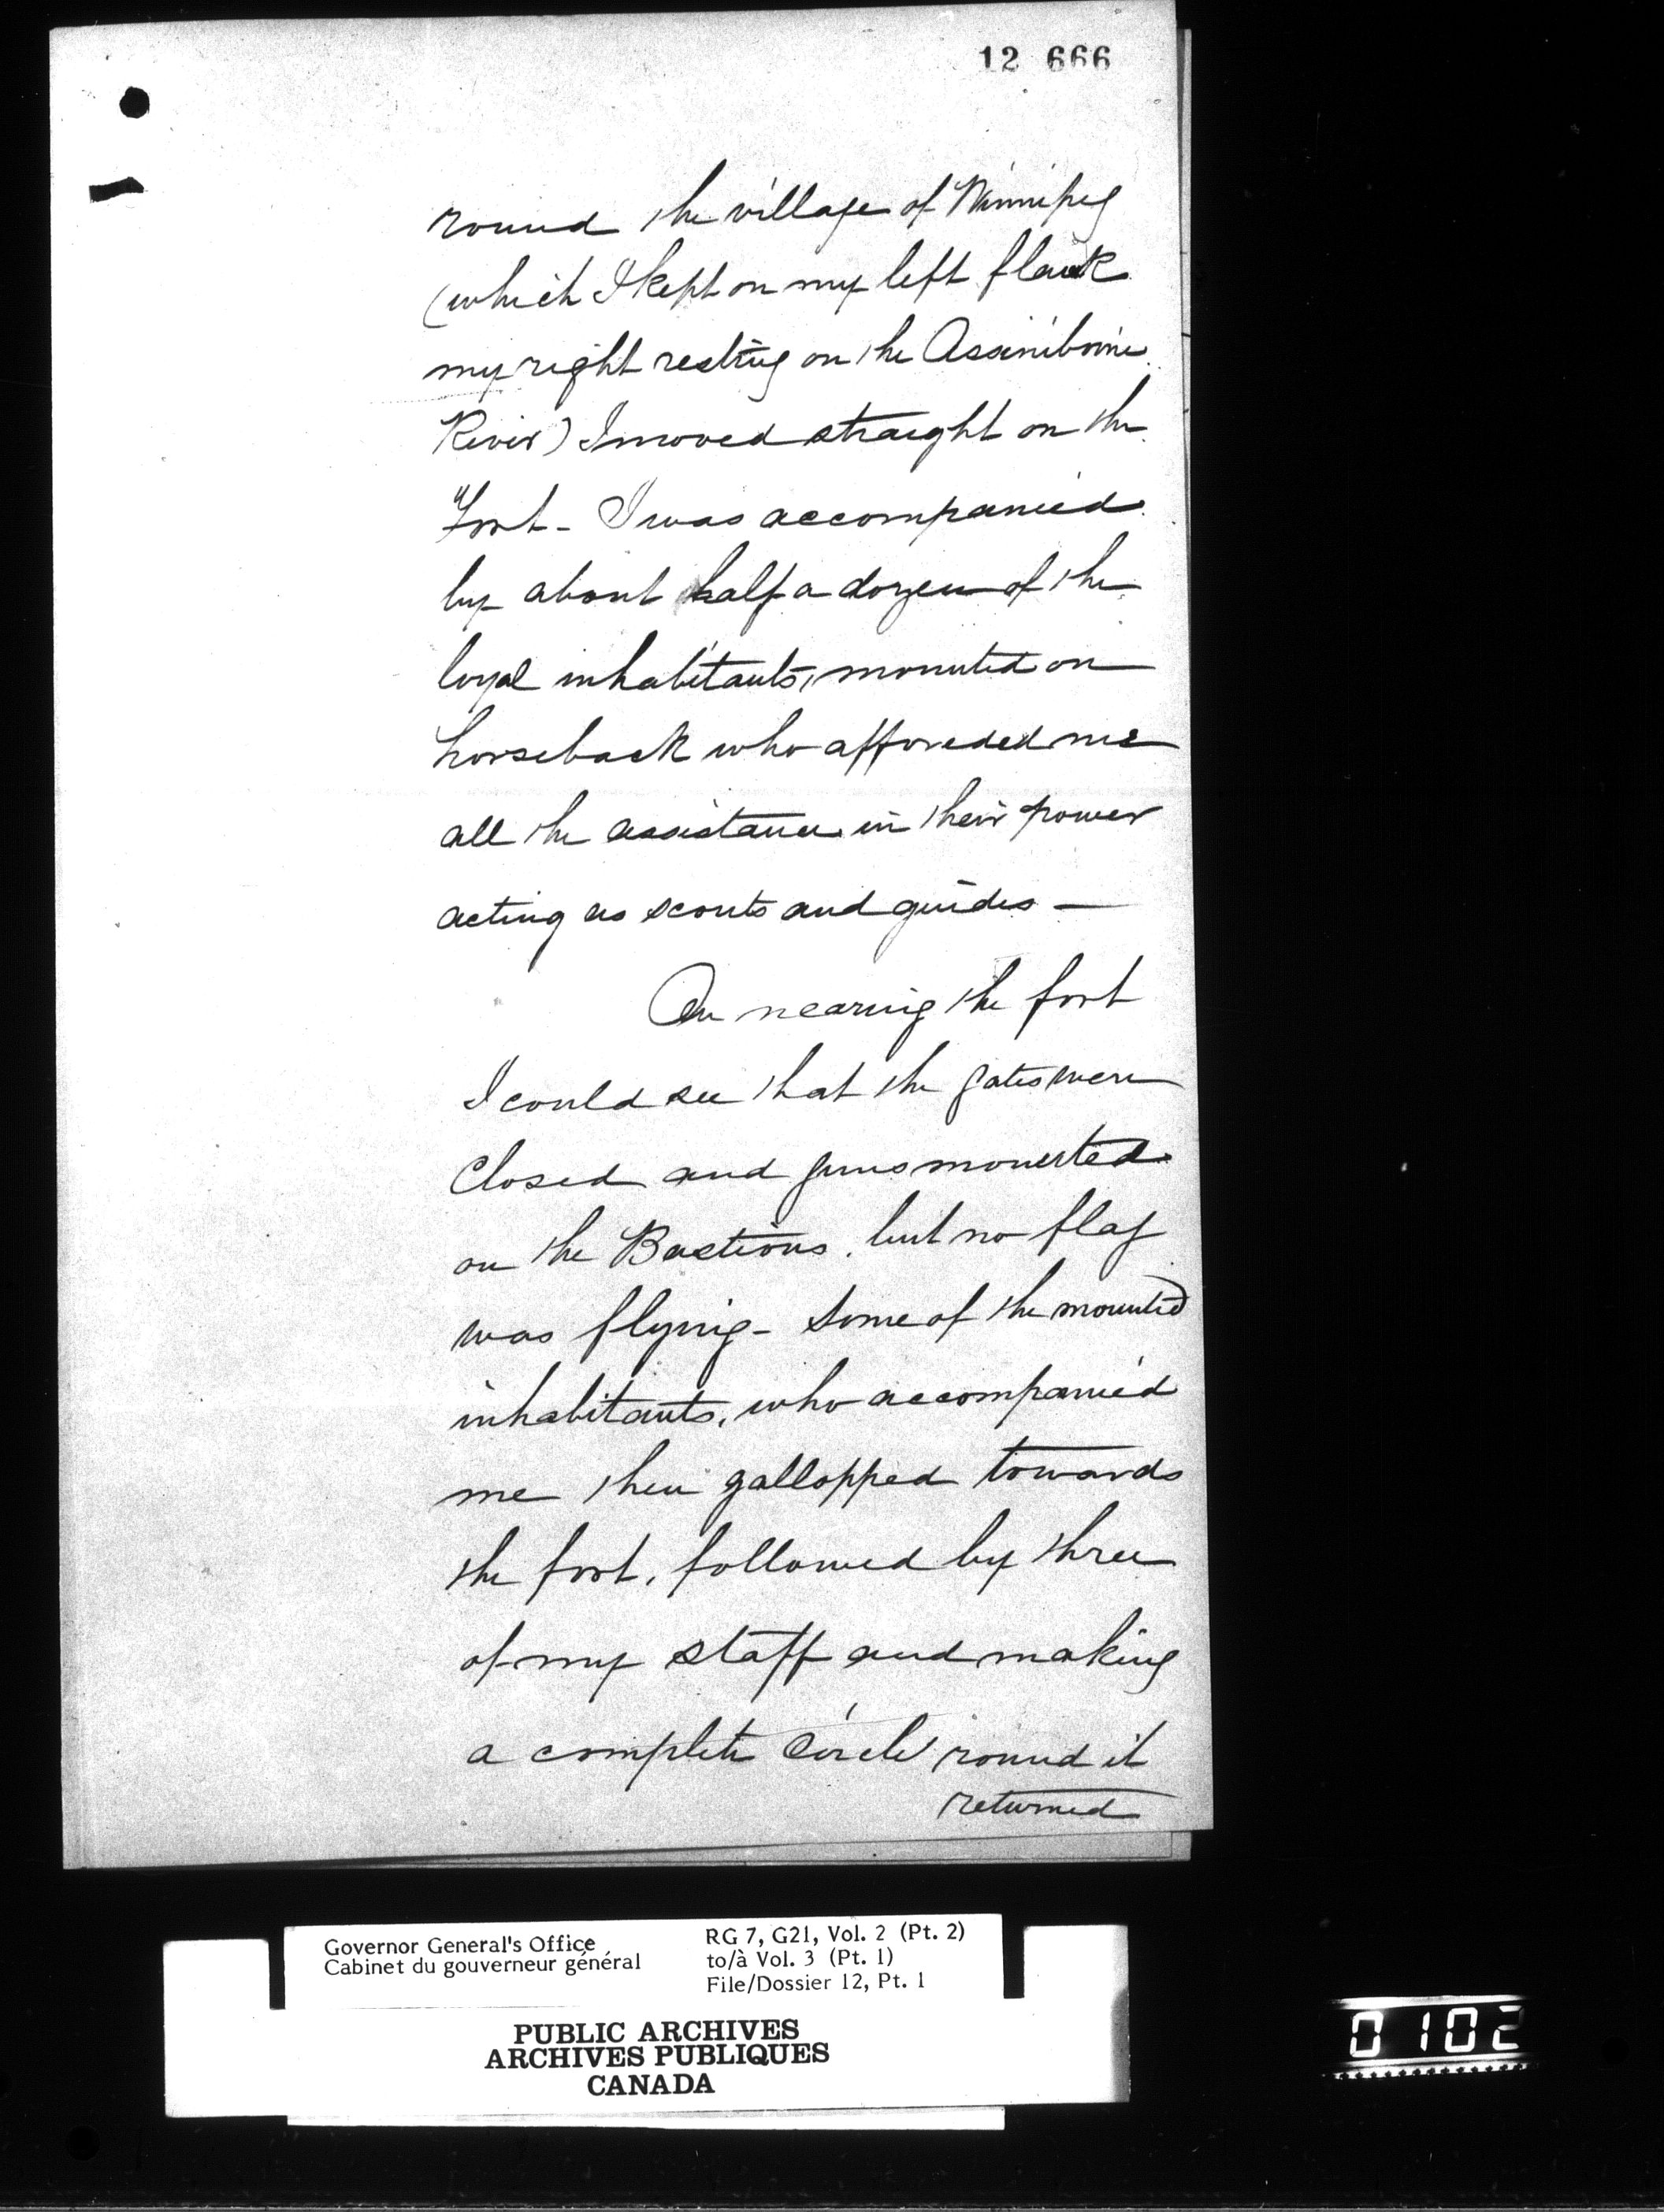 12 666
round the village of Winnipeg
(which I kept on my left flank
my right resting on the Assiniboine
River) I moved straight on the
Fort - I was accompanied
by about half a dozen of the
loyal inhabitants, mounted on
horseback who afforded me
all the assistance in their power
acting as scouts and guides —
On nearing the fort
I could see that the gates were
closed and guns mounted
on the Bastions, but no flag
was flying - Some of the mounted
inhabitants, who accompanied
me then gallopped towards
the fort, followed by three
of my staff and making
a complete circle round it
returned
Governor General's Office
Cabinet du gouverneur général
RG 7, G21, Vol. 2 (Pt. 2)
to/à Vol. 3 (Pt. 1)
File/Dossier 12, Pt. 1
PUBLIC ARCHIVES
ARCHIVES PUBLIQUES
CANADA
0102